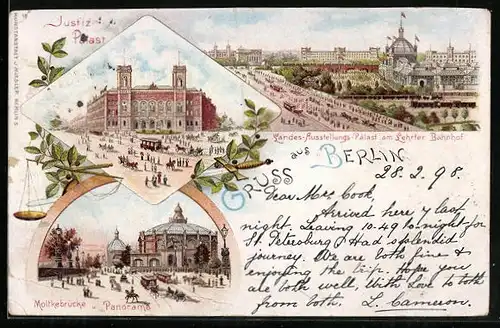 Justiz-
Palast
Landes-Ausstellungs-Palast am Lehrter Bahnhof
GRUSS aus BERLIN
28.2.98.
Dear Mrs Cook,
Arrived here last
night. Leaving 10.49 to night for
St. Petersburg. Had splendid
journey. We are both fine &
enjoying the trip. Hope you
are both well. With Love to both
from both. L. Cameron.
Moltkebrücke u. Panorama